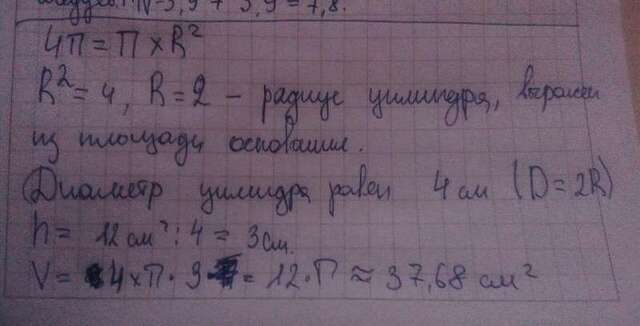 N=3,9 + 3,9 = 7,8.
4П = П × R²
R² = 4, R = 2 – радиус цилиндра, выражен
из площади основания.
Диаметр цилиндра равен 4 см (D = 2R)
h = 12 см² : 4 = 3 см.
V = 4 × П · 3 = 12 · П ≈ 37,68 см²